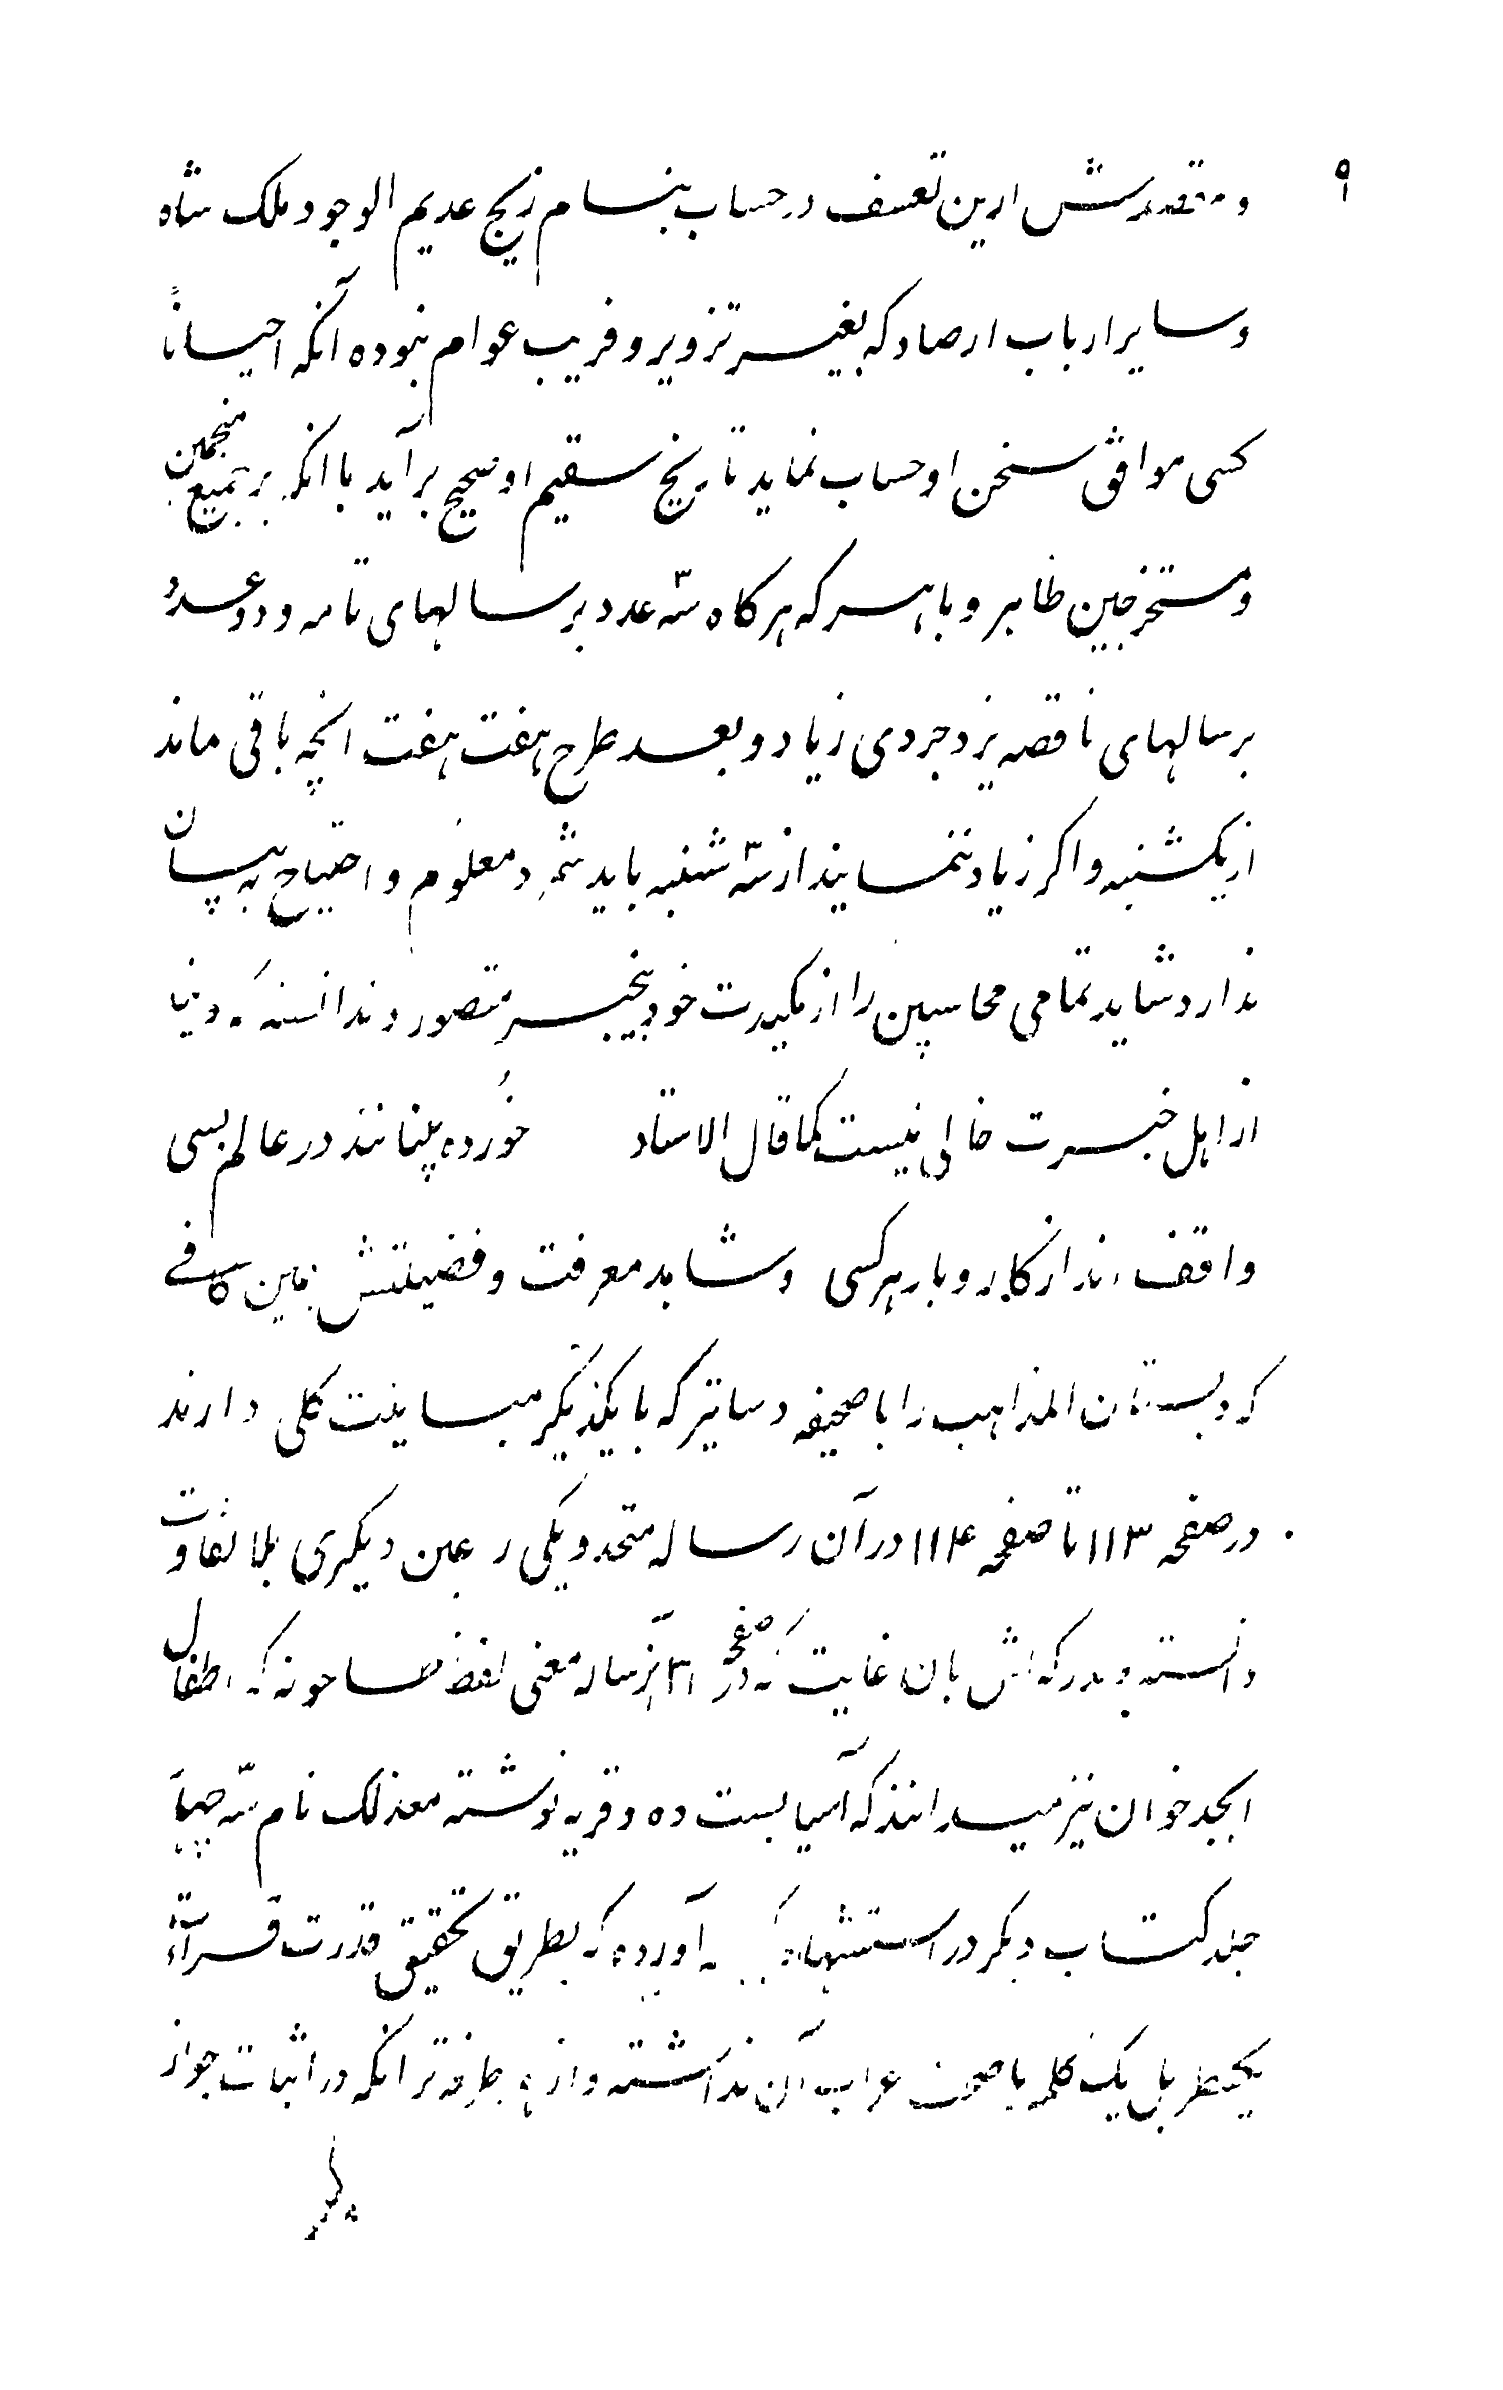 ۹
و مقصدش ازین تعسف در حساب بنسام زیج عدیم الوجود ملک شاه
وسایر ارباب ارصاد که بغیر تزویر و فریب عوام نبوده آنکه احیاناً
کسی موافق سخن او حساب نماید تاریخ سقیم او صحیح برآید با انکه بر جمیع منجمین
و مستخرجین ظاهر و باهر که هرکاه سه عدد بر سالهای تامه و دو عدد
بر سالهای ناقصه یزدجردی زیاد و بعد طرح هفت هفت انچه باقی ماند
از یکشنبه و اکر زیاد ننمایند از سه شنبه باید شمرد معلوم و احتیاج به بیان
ندارد شاید تمامی محاسبین را از مکیدت خود بیخبر متصور و ندانسته که دنیا
از اهل خبرت خالی نیست کما قال الاستاد خورده بینانند در عالم بسی
واقف اند از کار و بار هر کسی و شاهد معرفت و فضیلتش همین کافی
که دبستان المذاهب را با صحیفه دساتیر که با یکدیکر مباینت کلی دارند
در صفحه ۱۱۳ تا صفحه ۱۱۴ در آن رساله متحد و یکی را عین دیکری بلا تفاوت
دانسته و مدرکه اش بان غایت که در صفحه ۳۱ آنرساله معنی لفظ طساحونه که اطفال
ابجد خوان نیز میدانند که آسیابست ده و قریه نوشته معذلک نام سه چهار
جلد کتاب دیکر در استشهاد آورده که بطریق تحقیق قدرت قرآءة
یکسطر بل یک کلمه با صحت اعراب آن نداشته و از همه طرفه تر انکه در اثبات جواز